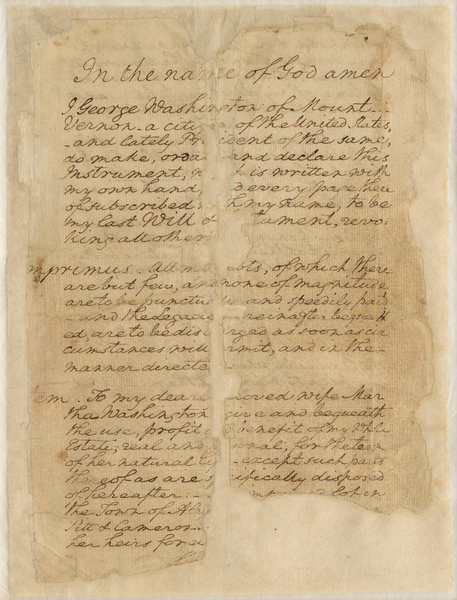 In the name of God amen
I George Washington of Mount
Vernon - a citi of the United States,
and lately Pr ident of the same,
do make, orda and declare this
Instrument, w h is written with
my own hand, d every page there
of subscribed h my name, to be
my last Will & tament, revo-
king all other
mprimus. All my bts, of which there
are but few, and none of magnitude
are to be punctu and speedily paid
and the Legacie reinafter bequeath
ed, are to be dis rged as soon as cir
cumstances will rmit, and in the
manner directe
tem. To my dear loved wife Mar
tha Washington give and bequeath
the use, profit benefit of my whole
Estate, real and nal, for the term
of her natural li except such parts
thereof as are s cifically disposed
of hereafter:- lot in
the Town of Al
Pitt & Cameron
her heirs for e